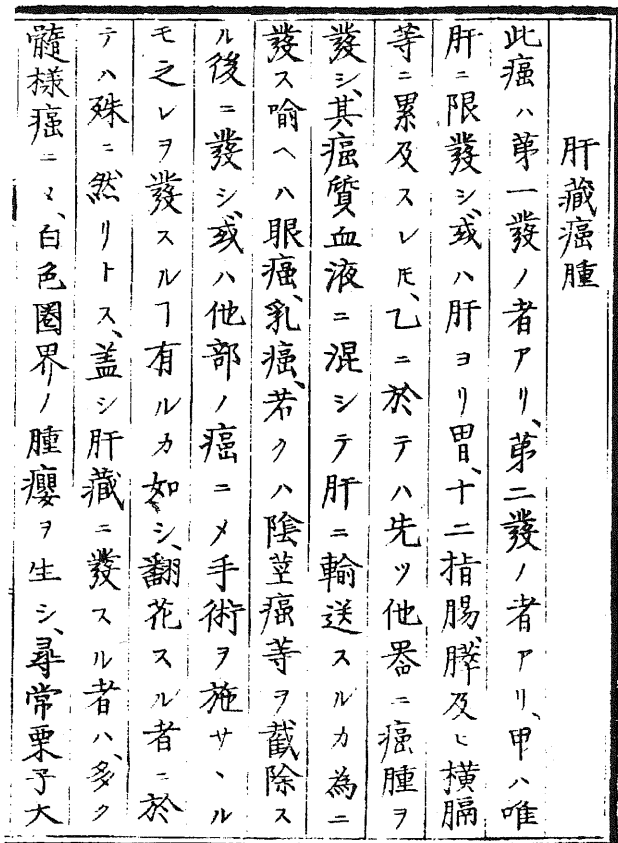 肝藏癌腫
此癌ハ第一發ノ者アリ、第二發ノ者アリ、甲ハ唯
肝ニ限發シ、或ハ肝ヨリ胃、十二指腸、膵及ヒ横膈
等ニ累及スレ𪜈、乙ニ於テハ先ツ他器ニ癌腫ヲ
發シ、其癌質血液ニ混シテ肝ニ輸送スルカ為ニ
發ス喻ヘハ眼癌、乳癌、若クハ陰莖癌等ヲ截除ス
ル後ニ發シ、或ハ他部ノ癌ニ〆手術ヲ施サヽル
モ之レヲ發スルヿ有ルカ如シ、翻花スル者ニ於
テハ殊ニ然リトス、盖シ肝藏ニ發スル者ハ、多ク
髓様癌ニ〆、白色圈界ノ腫癭ヲ生シ、尋常栗子大